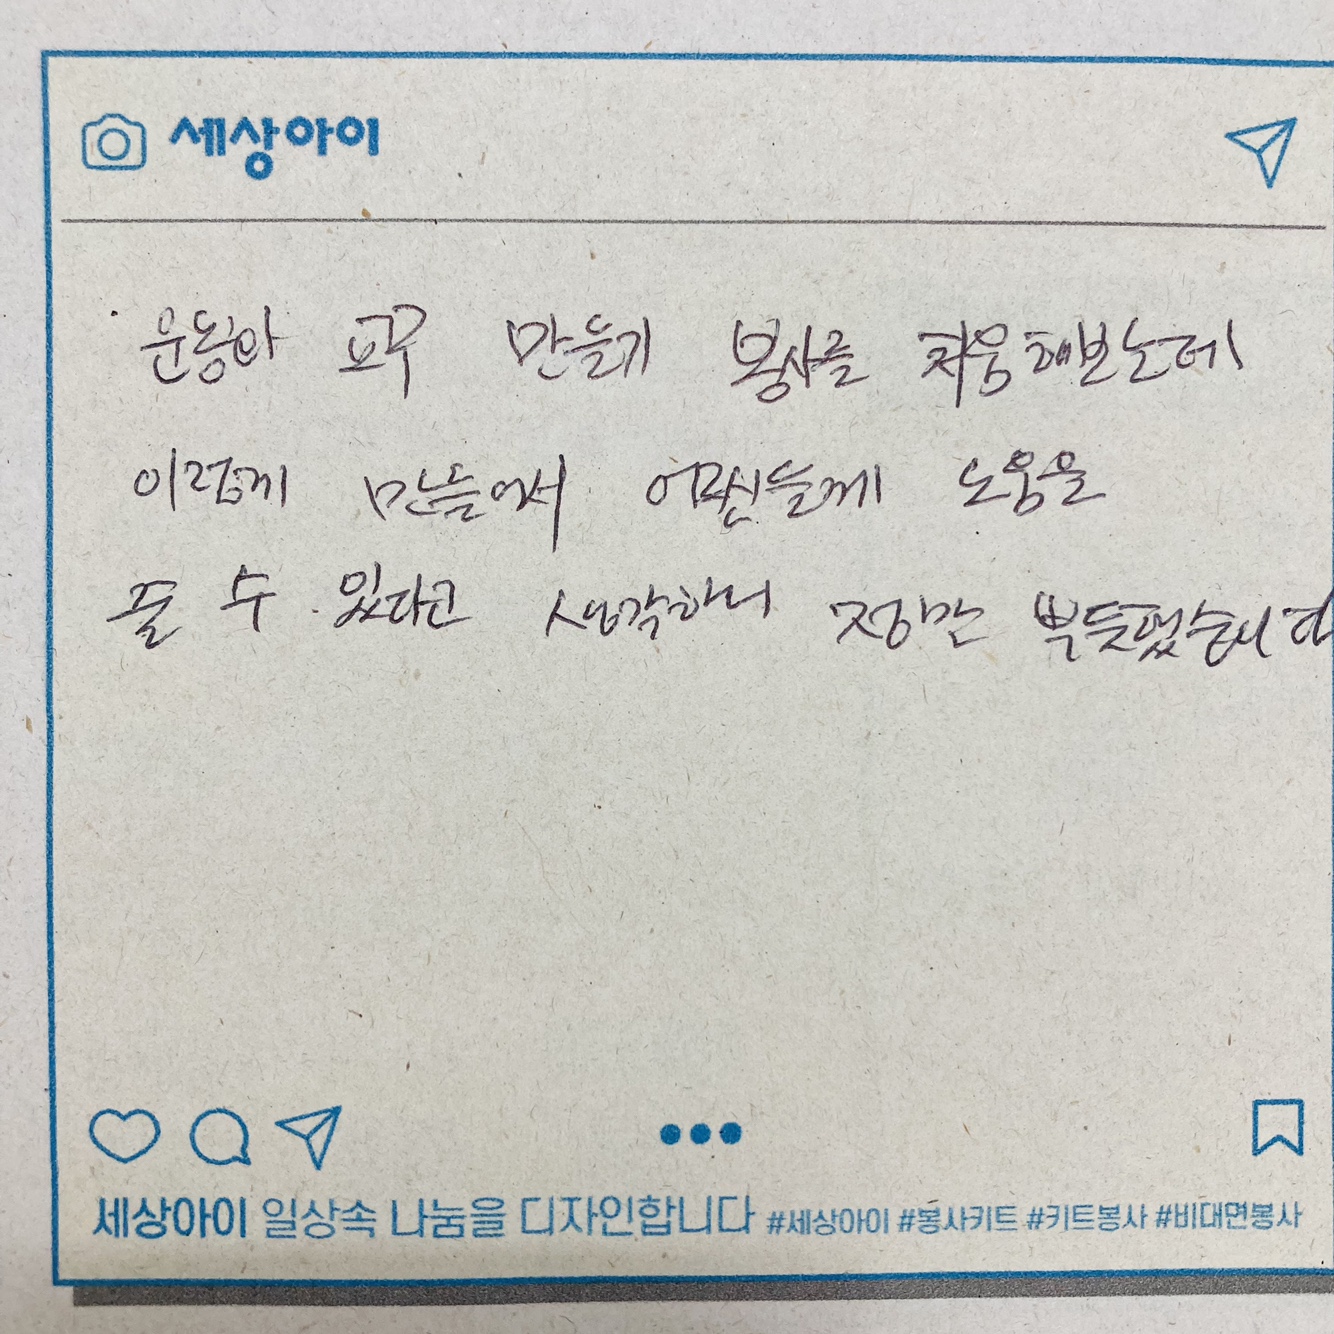 세상아이
운동화 교구 만들기 봉사를 처음해보는데
이렇게 만들어서 어르신들께 도움을
줄 수 있다고 생각하니 정말 뿌듯했습니다
세상아이 일상속 나눔을 디자인합니다 #세상아이 #봉사키트 #키트봉사 #비대면봉사